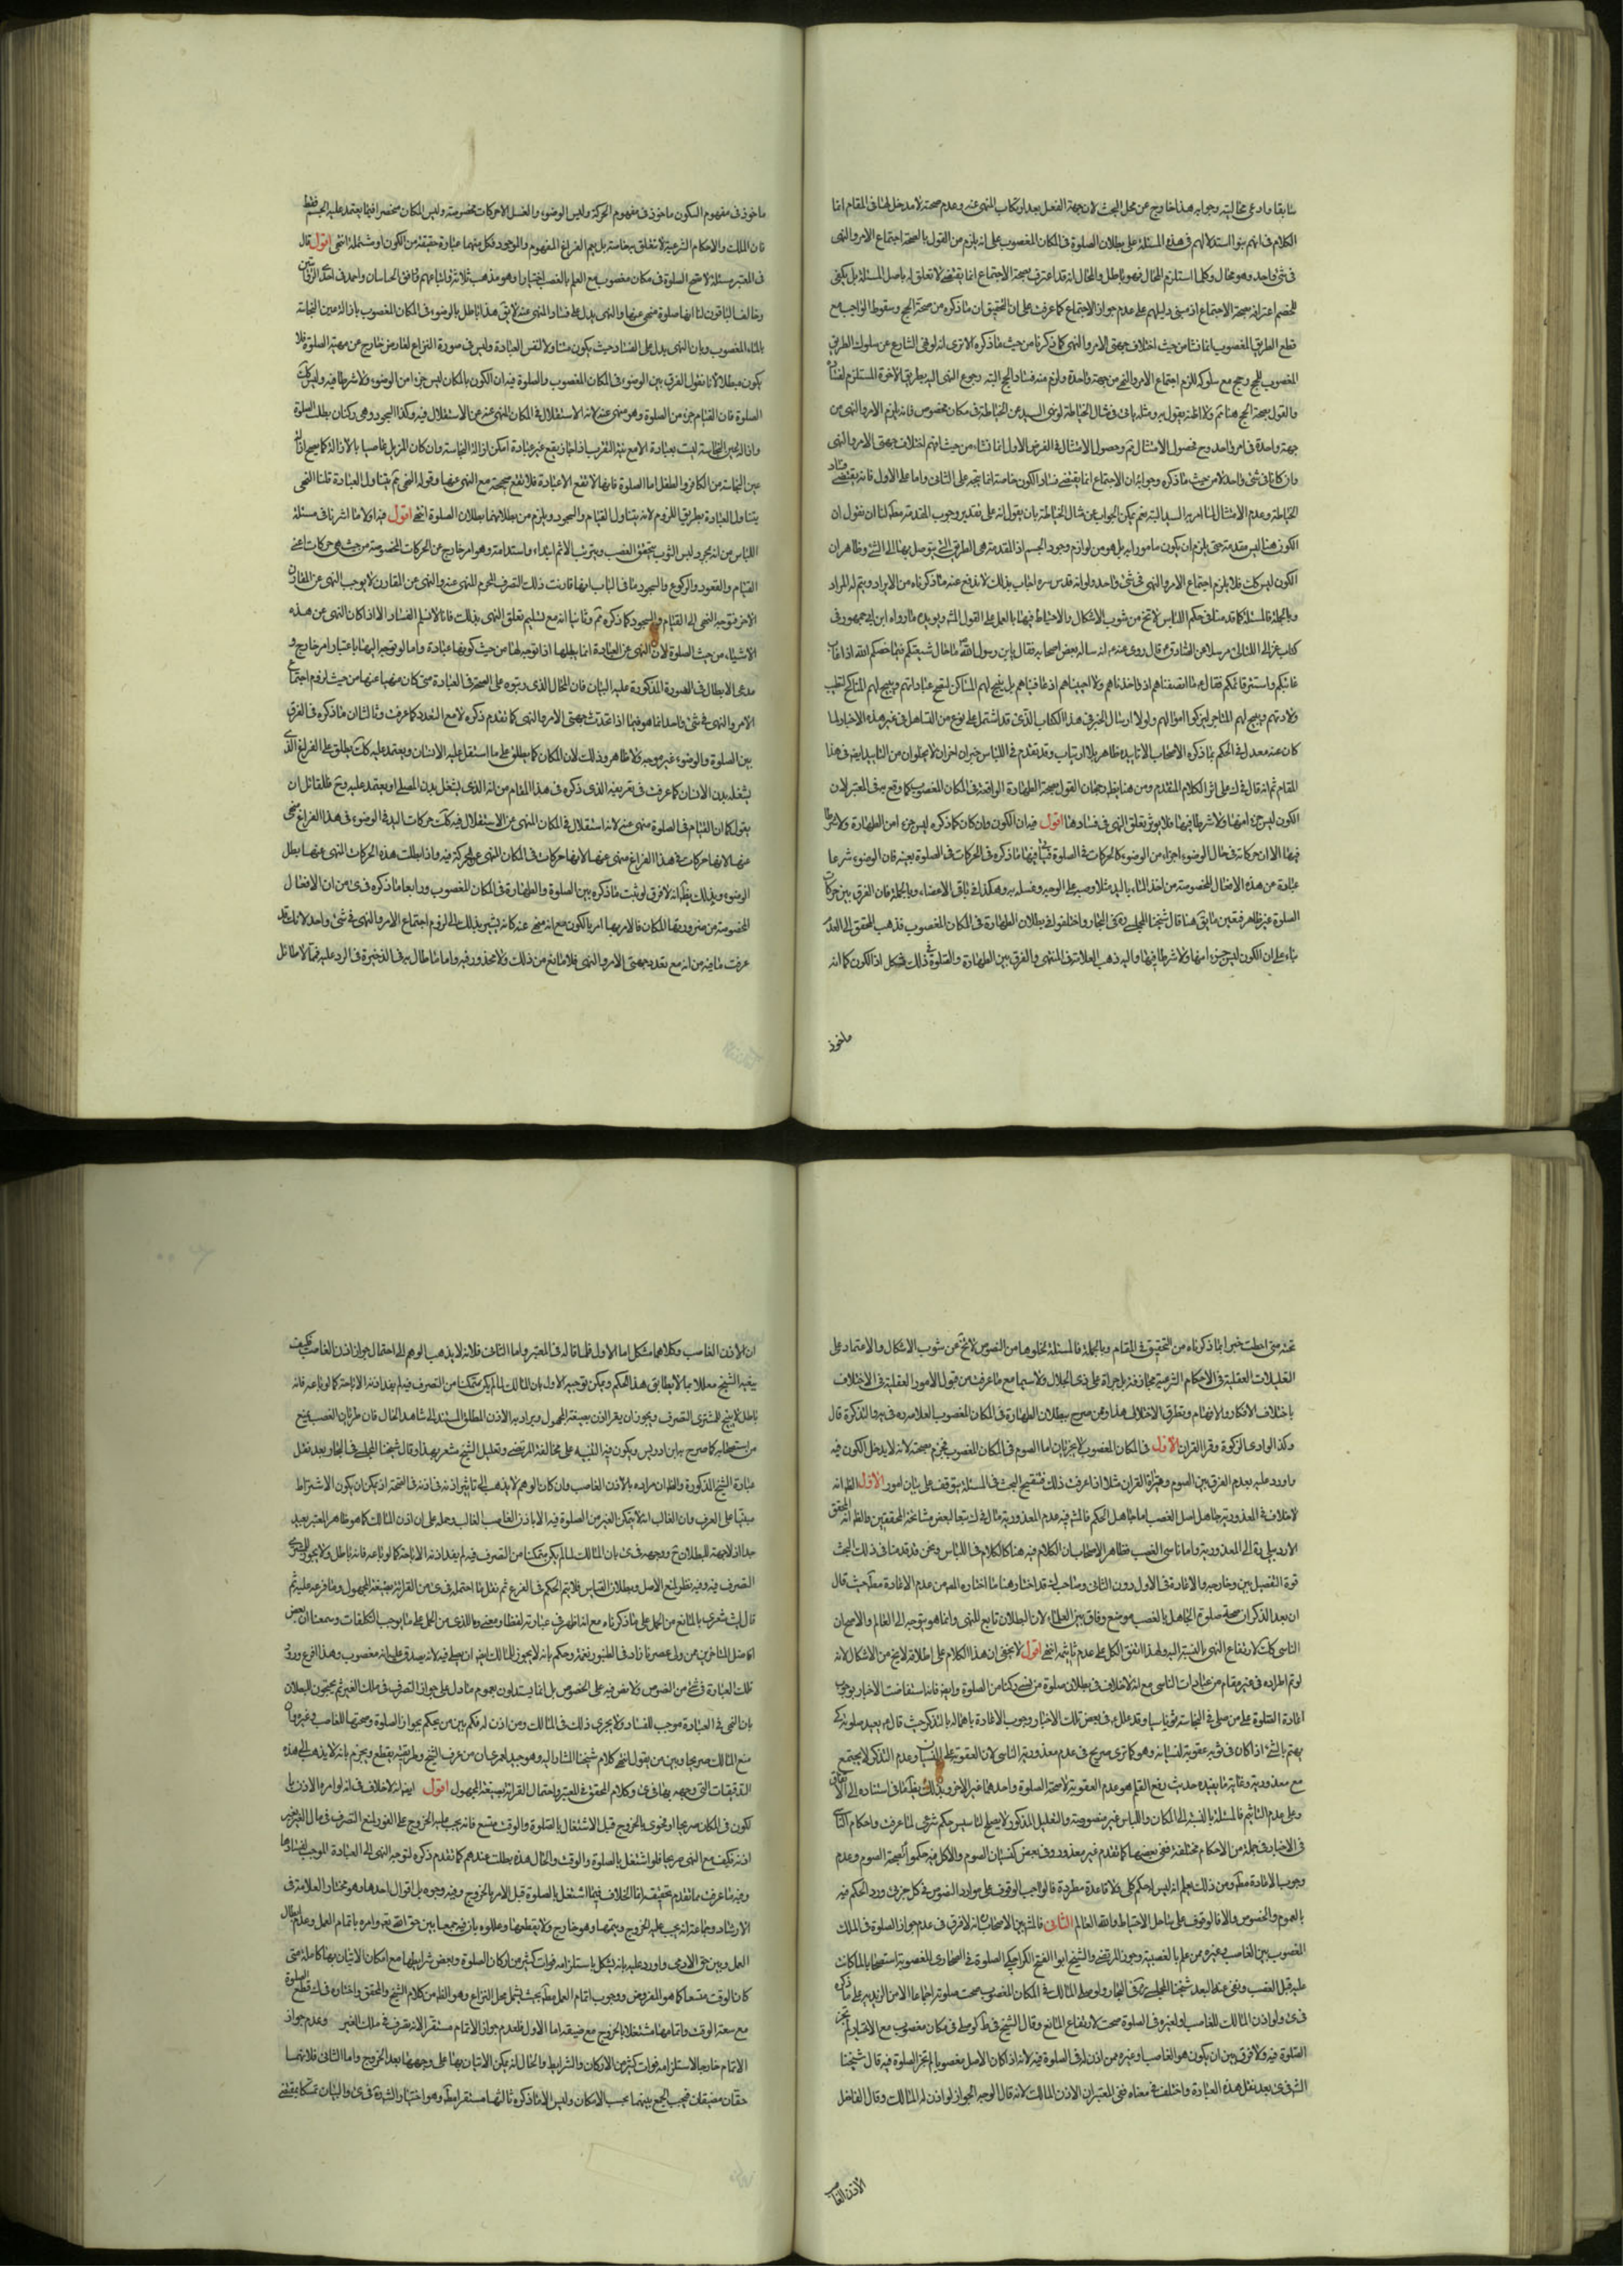 سابقا وادعى مخالفته وجوابه هذا خارج عن محل البحث لان جهة الفعل بعد ارتكاب المنهى عنه وعدم صحته لا مدخل لها فى المقام انما
الكلام فى انهم بنوا استدلالهم فى هذه المسئلة على بطلان الصلوة فى المكان المغصوب على انه يلزم من القول بالصحة اجتماع الامر والنهى
فى شئ واحد وهو محال وكلما استلزم المحال فهو باطل والحال انه قد اعترف بصحة الاجتماع انما يقتضى لا تعلق له باصل المسئلة بل يكفى
للخصم اعترافه بصحة الاجتماع اذ مبنى دليلهم على عدم جواز الاجتماع كما عرفت على ان التحقيق ان ما ذكره من صحة الحج وسقوط الواجب مع
قطع الطريق المغصوب انما نشا من حيث اختلاف جهتى الامر والنهى كما ذكرنا من حيث ما ذكره الا ترى انه لو نهى الشارع عن سلوك الطريق
المغصوب للحج وحج مع سلوكه للزم اجتماع الامر والنهى من جهة واحدة ولزم منه فساد الحج البتة وجوع النهى اليه بطريق الاخرة المستلزم لفساده
والقول بصحة الحج هنا ثم ولا اظنه يقول به ومثله ياتى فى مثال الخياطة لو نهى السيد عن الخياطة فى مكان مخصوص فانه يلزم الامر والنهى من
جهة واحدة فى امر واحد وح فحصول الامتثال ثم وحصول الامتثال فى الفرض الاول انما نشاء من حيثيتهم لاختلاف جهتى الامر والنهى
وان كانا فى شئ واحد لا من حيث ما ذكره وجوابه ان الاجتماع انما يقتضى فساد الكون خاصة انما يتجه على الثانى واما على الاول فانه يقتضى فساد
الخياطة وعدم الامتثال لما امر به السيد البتة نعم يمكن الجواب عن مثال الخياطة بان يقول انه على تقدير وجوب المقدمة مط لنا ان نقول ان
الكون هنا ليس مقدمة حتى يلزم ان يكون مامورا به بل هو من لوازم وجود الجسم اذ المقدمة هى الطريق التى يتوصل بها الى الشئ وظاهر ان
الكون ليس كك فلا يلزم اجتماع الامر والنهى فى شئ واحد ولو انه قدس سره اجاب بذلك لاندفع عنه ما ذكرناه من الايراد ويتم له المراد
وبالجملة فالمسئلة كما قدمنا فى حكم اللباس لا تخ من شوب الاشكال والاحتياط فيها بالعمل على القول المشهور ويؤيده ما رواه ابن ابى جمهور فى
كتاب غوالى اللئالى مرسلا عن الصادق ع قال روى عنه انه ساله بعض اصحابه فقال يا بن رسول الله ما حال شيعتكم فيما خصكم الله اذا غاب
غائبكم واستتر قائمكم فقال ع ما انصفناهم ان واخذناهم ولا احببناهم ان عاقبناهم بل نبيح لهم المساكن لتصح عباداتهم ونبيح لهم المناكح لتطيب
ولادتهم ونبيح لهم المتاجر ليزكوا اموالهم ولولا ارسال الخبر فى هذا الكتاب الذى قد اشتمل على نوع من التساهل فى غير هذه الاخبار لما
كان عنه معدل فى الحكم بما ذكره الاصحاب الا تاييده ظاهر بلا ارتياب وقد تقدم فى اللباس خبران اخران لا يخلوان من التاييد ايضه فى هذا
المقام ثم انه قال فى ك على اثر الكلام المتقدم ومن هنا يظهر رجحان القول بصحة الطهارة الواقعة فى المكان المغصوب كما وقع به فى المعتبر لان
الكون ليس جزء منها ولا شرطا فيها فلا يؤثر تعلق النهى فى فسادها اقول فيه ان الكون وان كان كما ذكره ليس جزء من الطهارة ولا شرطا
فيها الا ان حركاته فى حال الوضوء اجزاء من الوضوء كالحركات فى الصلوة فياتى فيها ما ذكره فى الحركات فى الصلوة بعينه فان الوضوء شرعا
عبارة عن هذه الافعال المخصوصة من اخذ الماء باليد مثلا وصبه على الوجه وغسله به وهكذا فى باقى الاعضاء وبالجملة فان الفرق بين حركات
الصلوة غير ظاهر فبقين ما بقى هنا قال شيخنا المجلسى ره فى البحار واختلفوا فى بطلان الطهارة فى المكان المغصوب فذهب المحقق الى العدم
بناء على ان الكون ليس جزء منها ولا شرطا فيها واليه ذهب العلامة فى المنتهى والفرق بين الطهارة والصلوة فى ذلك مشكل اذ الكون كما انه
ماخوذ
ماخوذ فى مفهوم السكون ماخوذ فى مفهوم الحركة وليس الوضوء والغسل الا حركات مخصوصة وليس المكان منحصرا فيما يعتمد عليه الجسم فقط
فان الملك والاحكام الشرعية لا تتعلق بخاصة بل يعم الفراغ الموهوم والموجود فكل منهما عبارة حقيقة من الكون او مشتملة انتهى اقول قال
فى المعتبر مسئلة لا تصح الصلوة فى مكان مغصوب مع العلم بالغصب اختيارا وهو مذهب ثلاثة واتباعهم وافق الجبائيان واحمد فى احدى الروايتين
وخالف الباقون لنا انها صلوة منهى عنها والنهى يدل على فساد المنهى عنه لا يق هذا باطل بالوضوء فى المكان المغصوب بازالة عين النجاسة
بالماء المغصوب وبان النهى يدل على الفساد حيث يكون متناولا لنفس العبادة وليس فى صورة النزاع لعارض خارج عن مهية الصلوة فلا
يكون مبطلا لانا نقول الفرق بين الوضوء فى المكان المغصوب والصلوة فيه ان الكون بالمكان ليس جزء من الوضوء ولا شرطا فيه وليس كك
الصلوة فان القيام جزء من الصلوة وهو منهى عنه لانه الاستقلال فى المكان المنهى عن الاستقلال فيه وكذا السجود وهى ركنان بطلت الصلوة
وازالة عين النجاسة ليست بعبادة الا مع نية التقرب واذا وقع غير عبادة امكن ازالة النجاسة وان كان المزيل غاصبا بالازالة كما يصح ازالة
عين النجاسة من الكافر والطفل اما الصلوة فانها لا تقع الا عبادة فلا تقع صحيحة مع النهى عنها وقوله النهى لم يتناول العبادة قلنا النهى
يتناول العبادة بطريق اللزوم لانه يتناول القيام والسجود ويلزم من بطلانهما بطلان الصلوة انتهى اقول فيه اولا ما اشرنا فى مسئلة
اللباس من انه مجرد لبس الثوب يتحقق الغصب ويترتب الاثم ابتداء واستدامة وهو امر خارج عن الحركات المخصوصة من حيث هى حركات اعنى
القيام والقعود والركوع والسجود ما فى الباب انها قارنت ذلك التصرف المحرم المنهى عنه والنهى عن المقارن لا يوجب النهى عن المقارن
الاخر فتوجه النهى الى القيام والسجود كما ذكره ثم وثانيا انه مع تسليم تعلق النهى بذلك فانا لا نسلم الفساد الا اذا كان النهى عن هذه
الاشياء من حيث الصلوة لان النهى عن العبادة انما يبطلها اذا توجه لها من حيث كونها عبادة واما لو توجه اليها باعتبار امر خارج و
مدعى الابطال فى الصورة المذكورة عليه البيان فان المحال الذى رتبوه على الصحة فى العبادة متى كان منهيا عنها من حيث لزوم اجتماع
الامر والنهى فى شئ واحد انما هو فيما اذا اتحدت جهتى الامر والنهى كما تقدم ذكره لا مع التعدد كما عرفت وثالثا ان ما ذكره فى الفرق
بين الصلوة والوضوء غير موجه ولا ظاهر وذلك لان المكان كما يطلق على ما استقل عليه الانسان ويعتمد عليه كك يطلق على الفراغ الذى
يشغله بدن الانسان كما عرفت فى تعريفه الذى ذكره فى هذا المقام من انه الذى يشغل بدن المصلى او يعتمد عليه وح فلقائل ان
يقول كما ان القيام فى الصلوة منهى عنه لانه استقلال فى المكان المنهى عن الاستقلال فيه كك حركات اليد فى الوضوء فى هذا الفراغ منهى
عنها لانها حركات فى هذا الفراغ منهى عنها لانها حركات فى المكان المنهى عن الحركة فيه واذا بطلت هذه الحركات المنهى عنها بطل
الوضوء وبذلك يظهر انه لا فرق لو ثبت ما ذكره بين الصلوة والطهارة فى المكان المغصوب ورابعا ما ذكره فى ى من ان الافعال
المخصوصة من ضرورتها المكان فالامر بها امر بالكون مع انه منهى عنه كانه يشير بذلك الى لزوم اجتماع الامر والنهى فى شئ واحد لانا قد
عرفت ما فيه من انه مع تعدد جهتى الامر والنهى فلا مانع من ذلك ولا محذور فيه واما ما اطال به فى الذخيرة فى الرد عليه فما لا طائل
تحته متى احطت خبرا بما ذكرناه من التحقيق فى المقام وبالجملة فالمسئلة لخلوها من النصوص لا تخ عن شوب الاشكال والاعتماد على
التعليلات العقلية فى الاحكام الشرعية مجازفة بل جراة على ذى الجلال ولا سيما مع ما عرفت من قبول الامور العقلية فى الاختلاف
باختلاف الافكار والافهام وتطرق الاختلال هذا وممن صرح ببطلان الطهارة فى المكان المغصوب العلامه ره فى يه والتذكرة قال
وكذا لو ادى الزكوة وقرا القران الاول فى المكان المغصوب لا يجزيان اما الصوم فى المكان المغصوب فجزم بصحته لانه لا يدخل الكون فيه
واورد عليه بعدم الفرق بين الصوم وقراءة القران مثلا اذا عرفت ذلك فتنقيح البحث فى المسئلة يتوقف على بيان امور الاول الظ انه
لا خلاف فى المعذورية جاهل اصل الغصب اما جاهل الحكم فالمش فيه عدم المعذورية مال فى ك تبعا لبعض مشائخه المحققين والظ انه المحقق
الاردبيلى ره الى المعذورية واما ناسى الغصب فظاهر الاصحاب ان الكلام فيه هنا كالكلام فى اللباس ونحن قد قدمنا فى ذلك البحث
قوة التفصيل بين وخارجه والاعادة فى الاول دون الثانى وصاحب ك قد اختار هنا ما اختاره ثمه من عدم الاعادة مط حيث قال
ان بعد الذكر ان صحة صلوة الجاهل بالغصب موضع وفاق بين العلماء لان البطلان تابع للنهى وانما هو يتوجه الى العالم والاصح ان
الناسى كك لارتفاع النهى بالنسبة اليه ولهذا اتفق الكل على عدم تاثيمه انتهى اقول لا يخفى ان هذا الكلام على اطلاقه لا يخ من الاشكال لانه
لو تم اطراده فى غير مقام من عبادات الناسى مع انه لا خلاف فى بطلان صلوة من نسى ركنا من الصلوة وايضه فانه استفاضت الاخبار بوجوب
اعادة الصلوة على من صلى فى النجاسة ثوبا ناسيا وقد علل ع فى بعض تلك الاخبار وجوب الاعادة باهماله بالتذكر حيث قال ع يعيد صلوته كى
يهتم بالشئ اذا كان فى ثوبه عقوبة لنسيانه وهو كما ترى صريح فى عدم معذورية الناسى لان العقوبة على النسيان وعدم التذكر لا يجتمع
مع معذوريته وغاية ما يفيده حديث رفع القلم هو عدم العقوبة لا صحة الصلوة واحدهما غير الاخر وبذلك يظهر ما فى استناده الى الاتفاق
وعلى عدم التاثيم فالمسئلة بالنسبة الى المكان واللباس غير منصوصة والتعليل المذكور لا يصلح لتاسيس حكم شرعى لما عرفت واحكام الناسى
فى الاخبار فى جملة من الاحكام مختلفة ففى بعضها كما تقدم غير معذور وفى بعض كنسيان الصوم والاكل فيه حكموا بصحة الصوم وعدم
وجوب الاعادة مط ومن ذلك يعلم انه ليس له حكم كلى ولا قاعدة مطردة فالواجب الوقوف على موارد النصوص فى كل جزئى ورد الحكم فيه
بالعموم والخصوص والا فالوقوف على ساحل الاحتياط والله العالم الثانى فالمش بين الاصحاب انه لا فرق فى عدم جواز الصلوة فى الملك
المغصوب بين الغاصب وغيره ممن علم بالغصبية وجوز المرتضى والشيخ ابو الفتح الكراجكى الصلوة فى الصحارى المغصوبة استصحابا لما كانت
عليه قبل الغصب ونفى عنه البعد شيخنا المجلسى ره فى البحار ولو صلى المالك فى المكان المغصوب صحت صلوته اجماعا الا من الزيدية على ما ذكره
فى ى ولو اذن المالك للغاصب او لغيره فى الصلوة صحت لارتفاع المانع وقال الشيخ فى ط لو صلى فى مكان مغصوب مع الاختيار لم تجز
الصلوة فيه ولا فرق بين ان يكون هو الغاصب او غيره ممن اذن له فى الصلوة فيه لانه اذا كان الاصل مغصوبا لم تجز الصلوة فيه قال شيخنا
الشهيد فى ى بعد نقل هذه العبارة واختلف فى معناه ففى المعتبر ان الاذن المالك لانه قال الوجه الجواز لو اذن له المالك وقال الفاضل
الاذن الغاصب
ان الاذن الغاصب وكلاهما مشكل اما الاول فلما قاله فى المعتبر واما الثانى فلانه لا يذهب الوهم الى احتمال جواز اذن الغاصب فكيف
يفيد الشيخ معللا بما لا يطابق هذا الحكم ويمكن توجيه الاول بان المالك لما لم يكن متمكنا من التصرف فيه لم يفد اذنه الاباحة كما لو باعه فانه
باطل لا يبيح للمشترى التصرف ويجوز ان يقرا اذن بصيغة المجهول ويراد به الاذن المطلق المستند الى شاهد الحال فان طريان الغصب يمنع
من استصحابه كما صرح به ابن ادريس ويكون فيه التنبيه على مخالفة المرتضى وتعليل الشيخ مشعر بهذا وقال شيخنا المجلسى فى البحار بعد نقل
عبارة الشيخ المذكورة والظ ان مراده بالاذن الغاصب وان كان الوهم لا يذهب الى تاثير اذنه فى اذنه فى الصحة اذ يمكن ان يكون الاشتراط
مبنيا على العرف وان الغالب انه لا يتمكن الغير من الصلوة فيه الا باذن الغاصب الغالب وحمله على ان اذن المالك كما هو ظاهر المعتبر بعيد
جدا اذ لا جهة للبطلان ح ووجهه فى ى بان المالك لما لم يكن متمكنا من التصرف فيه لم يفد اذنه الاباحة كما لو باعه فانه باطل ولا يجوز للمشترى
التصرف فيه وفيه نظر لمنع الاصل وبطلان القياس فلا يتم الحكم فى الفرع ثم نقل ما احتمله فى ى من القرائة بصيغة المجهول وما فرعه عليه ثم
قال ليت شعرى ما المانع من الحمل على ما ذكرناه مع انه اظهر فى عبارته لفظا ومعنى وما الذى من الحمل على ما يوجب التكلفات وسمعنا ان بعض
افاضل المتاخرين ممن ولى عصرنا زاد فى الطنبور نغمة وحكم بانه لا يجوز للمالك ايضه ان يصلى فيه لانه يصدق عليه انه مغصوب وهذا فرع ورود
تلك العبارة فى شئ من النصوص ولا نص فيه على الخصوص بل انما يستدلون بعموم ما دل على جواز التصرف فى ملك الغير ثم يحتجون للبطلان
بان النهى فى العبادة موجب للفساد ولا يجرى ذلك فى المالك ومن اذن له فكم بين من يحكم بجواز الصلوة وصحتها للغاصب وغيره وان
منع المالك صريحا وبين من يقول انتهى كلام شيخنا المشار اليه وهو جيد لعمرى ان من عرف الشيخ وطريقته يقطع ويجزم بانه لا يذهب الى هذه
التدقيقات التى وجهه بها فى ى وكلام المحقق فى المعتبر واحتمال القرائة بصيغة المجهول اقول ايضه انه لا خلاف فى انه لو امره الاذن با
لكون فى المكان صريحا او فحوى بالخروج قبل الاشتغال بالصلوة والوقت متسع فانه يجب عليه الخروج على الفور لمنع التصرف فى مال الغير بغير
اذنه فكيف مع النهى صريحا فلو اشتغل بالصلوة والوقت والحال هذه بطلت عندهم كما تقدم ذكره لتوجه النهى الى العبادة الموجب لفسادها
وفيه ما عرفت مما تقدم تحقيقه انما الخلاف فيما لو اشتغل بالصلوة قبل الامر بالخروج وفيه وجوه بل اقوال احدها وهو مختار العلامة فى
الارشاد وجماعة انه يجب عليه الخروج ويتمها وهو خارج ولا يقطعها وعللوه بان فيه جمعا بين حق الله تعالى وامره باتمام العمل وعدم ابطال
العمل وبين حق الادمى واورد عليه بانه يشكل باستلزامه فوات كثير من اركان الصلوة وبعض شرايطها مع امكان الاتيان بها كاملة متى
كان الوقت متسعا كما هو المفروض ووجوب اتمام العمل مط بحيث يشمل محل النزاع وهو الظ من كلام الشيخ والمحقق واختاره فى ك قطع الصلوة
مع سعة الوقت واتمامها مشتغلا بالخروج مع ضيقه اما الاول فلعدم جواز الاتمام مستقرا لانه تصرف فى ملك الغير وعدم جواز
الاتمام خارجا لاستلزامه فوات كثير من الاركان والشرايط والحال انه يمكن الاتيان بها على وجهها بعد الخروج واما الثانى فلانهما
حقان مضيقان فيجب الجمع بينهما بحسب الامكان وليس الا ما ذكره ثالثها مستقرا مط وهو اختيار الشهيد ره فى ى والبيان تمسكا بمقتضى